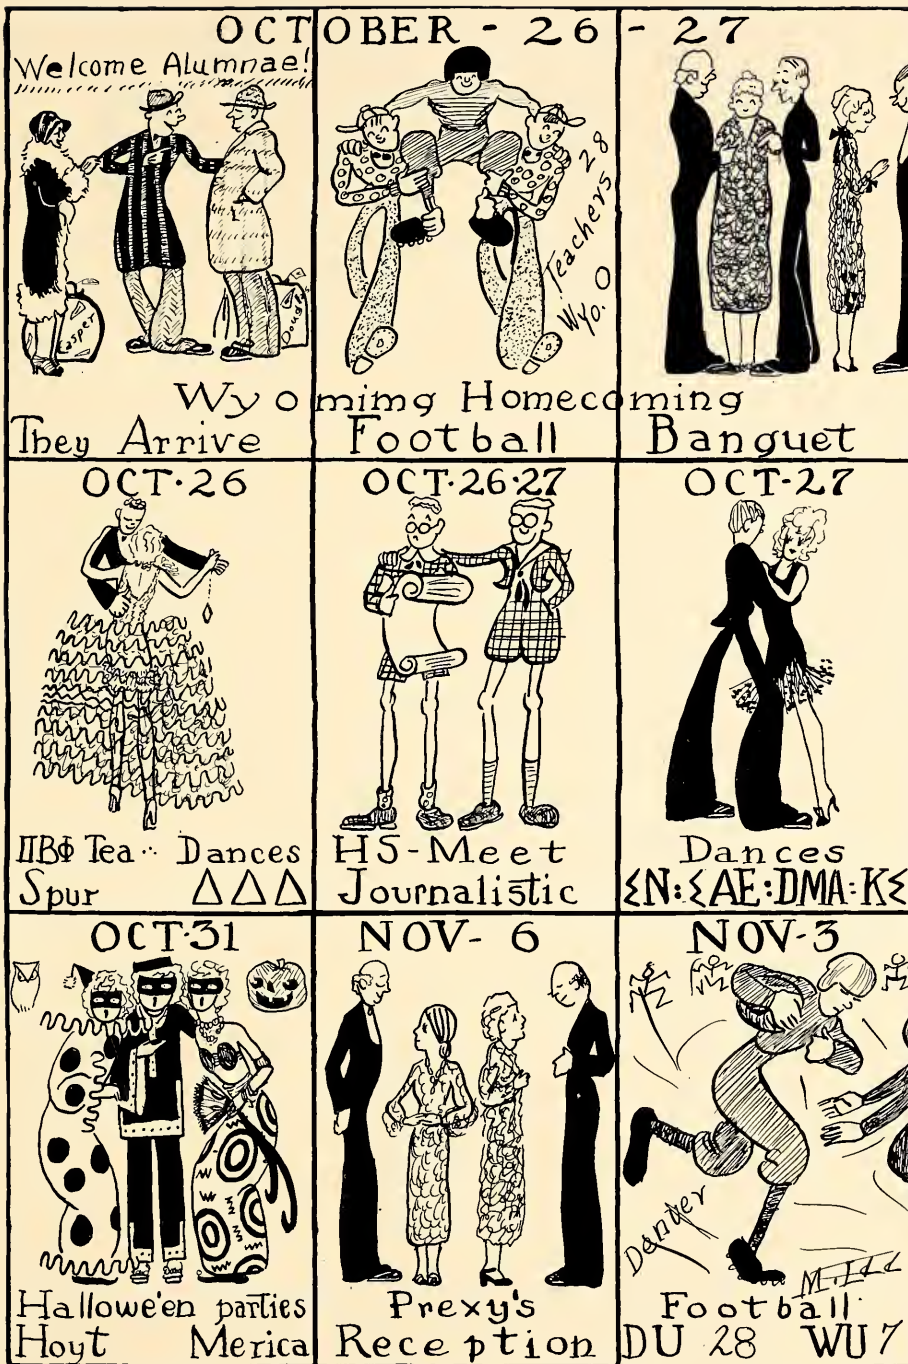 OCTOBER - 26 - 27
Welcome Alumnae!
Casper
Douglas
Teachers 28
Wyo. 0
Wyomimg Homecoming
They Arrive
Football
Banguet
OCT·26
ΠΒΦ Tea·· Dances
Spur ΔΔΔ
OCT·26·27
HS-Meet
Journalistic
OCT-27
Dances
ΣN:ΣAE:DMA:KΣ
OCT·31
Hallowe'en parties
Hoyt Merica
NOV- 6
Prexy's
Reception
NOV-3
Denver
Football
DU 28 WU 7